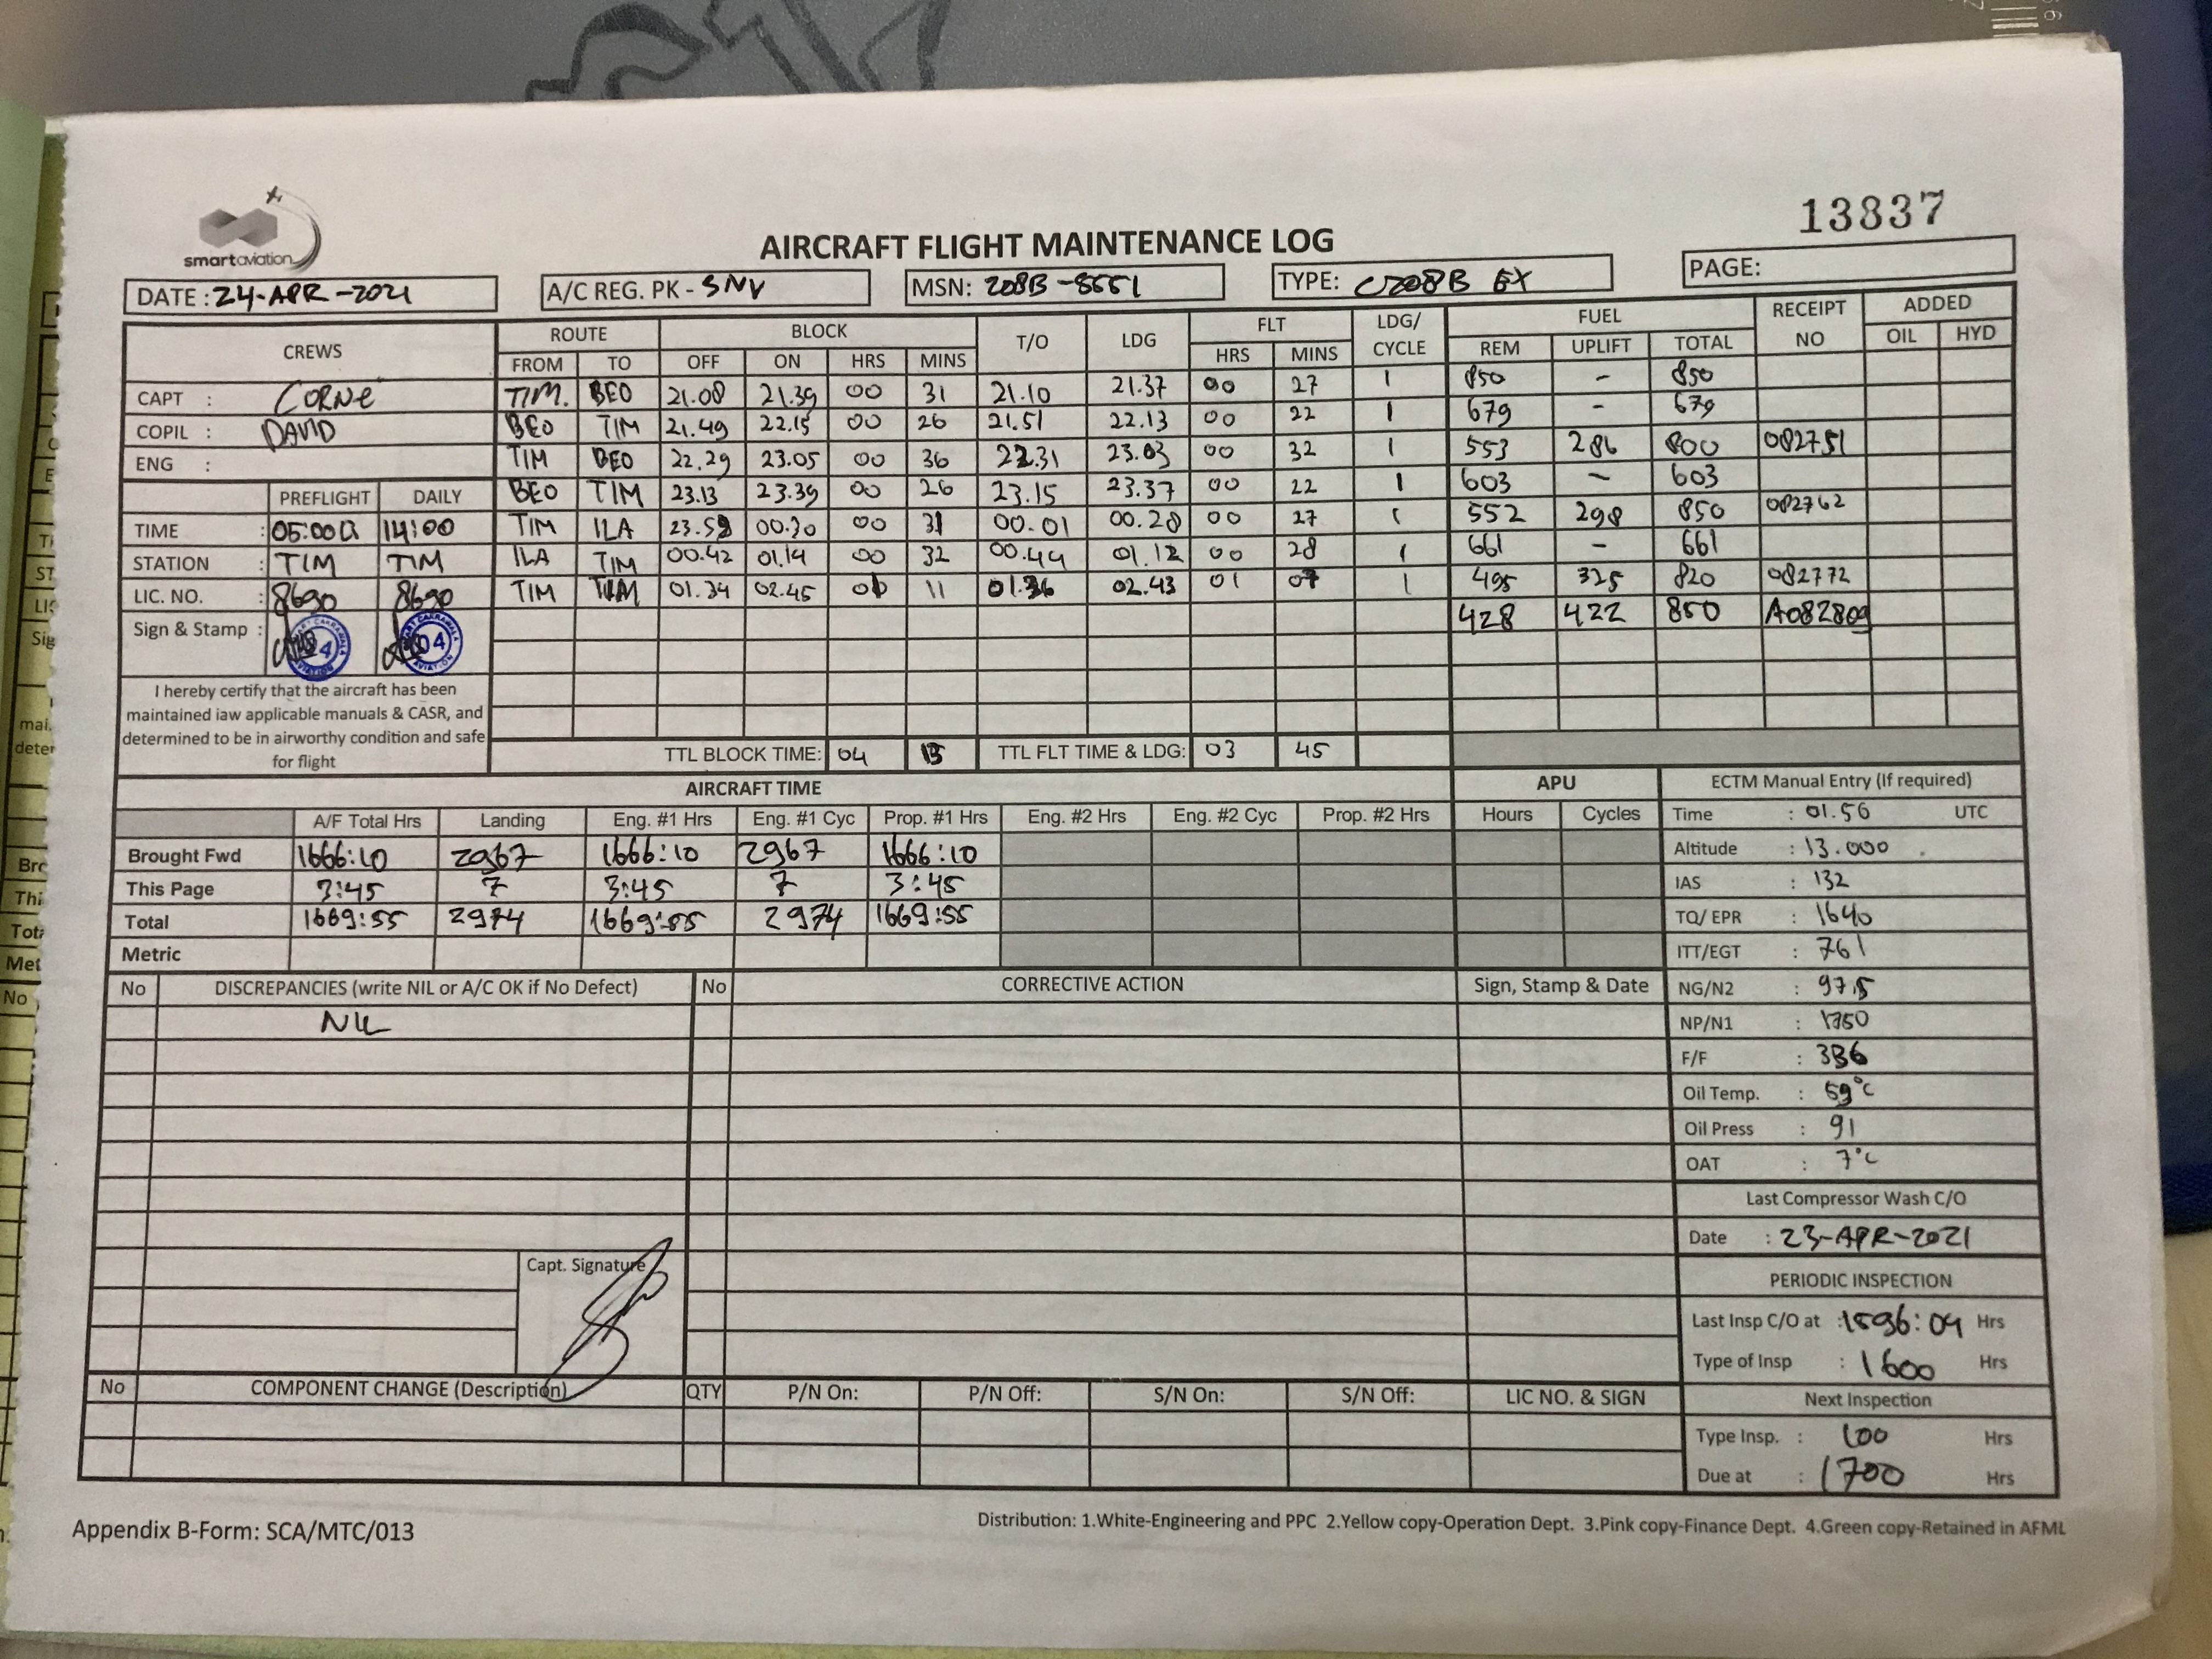 13837
smartaviation
AIRCRAFT FLIGHT MAINTENANCE LOG
DATE : 24-APR-2021 A/C REG. PK - SNV MSN: 208B-8551 TYPE: C208B EX PAGE:
CREWS ROUTE BLOCK T/O LDG FLT LDG/ CYCLE FUEL RECEIPT NO ADDED
FROM TO OFF ON HRS MINS HRS MINS REM UPLIFT TOTAL OIL HYD
CAPT : CORNE TIM. BEO 21.08 21.39 00 31 21.10 21.37 00 27 1 850 - 850
COPIL : DAVID BEO TIM 21.49 22.15 00 26 21.51 22.13 00 22 1 679 - 679
ENG : TIM BEO 22.29 23.05 00 36 22.31 23.03 00 32 1 553 286 800 082751
PREFLIGHT DAILY BEO TIM 23.13 23.39 00 26 23.15 23.37 00 22 1 603 - 603
TIME : 05:00 14:00 TIM ILA 23.59 00.30 00 31 00.01 00.28 00 27 1 552 298 850 082762
STATION : TIM TIM ILA TIM 00.42 01.14 00 32 00.44 01.12 00 28 1 661 - 661
LIC. NO. : 8690 8690 TIM TIM 01.34 02.45 01 11 01.36 02.43 01 07 1 495 325 820 082772
Sign & Stamp : 428 422 850 A082809
04 AVIATION
I hereby certify that the aircraft has been
maintained iaw applicable manuals & CASR, and
determined to be in airworthy condition and safe
for flight
TTL BLOCK TIME: 04 TTL FLT TIME & LDG: 03 45
AIRCRAFT TIME APU ECTM Manual Entry (If required)
A/F Total Hrs Landing Eng. #1 Hrs Eng. #1 Cyc Prop. #1 Hrs Eng. #2 Hrs Eng. #2 Cyc Prop. #2 Hrs Hours Cycles Time : 01.56 UTC
Brought Fwd 1666:10 2967 1666:10 2967 1666:10 Altitude : 13.000
This Page 3:45 7 3:45 7 3:45 IAS : 132
Total 1669:55 2974 1669:55 2974 1669:55 TQ/ EPR : 1640
Metric ITT/EGT : 761
No DISCREPANCIES (write NIL or A/C OK if No Defect) No CORRECTIVE ACTION Sign, Stamp & Date NG/N2 : 97.5
NIL NP/N1 : 1750
F/F : 336
Oil Temp. : 59°C
Oil Press : 91
OAT : 7°C
Last Compressor Wash C/O
Date : 23-APR-2021
Capt. Signature
PERIODIC INSPECTION
Last Insp C/O at : 1596:09 Hrs
Type of Insp : 1600 Hrs
No COMPONENT CHANGE (Description) QTY P/N On: P/N Off: S/N On: S/N Off: LIC NO. & SIGN Next Inspection
Type Insp. : 100 Hrs
Due at : 1700 Hrs
Appendix B-Form: SCA/MTC/013
Distribution: 1.White-Engineering and PPC 2.Yellow copy-Operation Dept. 3.Pink copy-Finance Dept. 4.Green copy-Retained in AFML